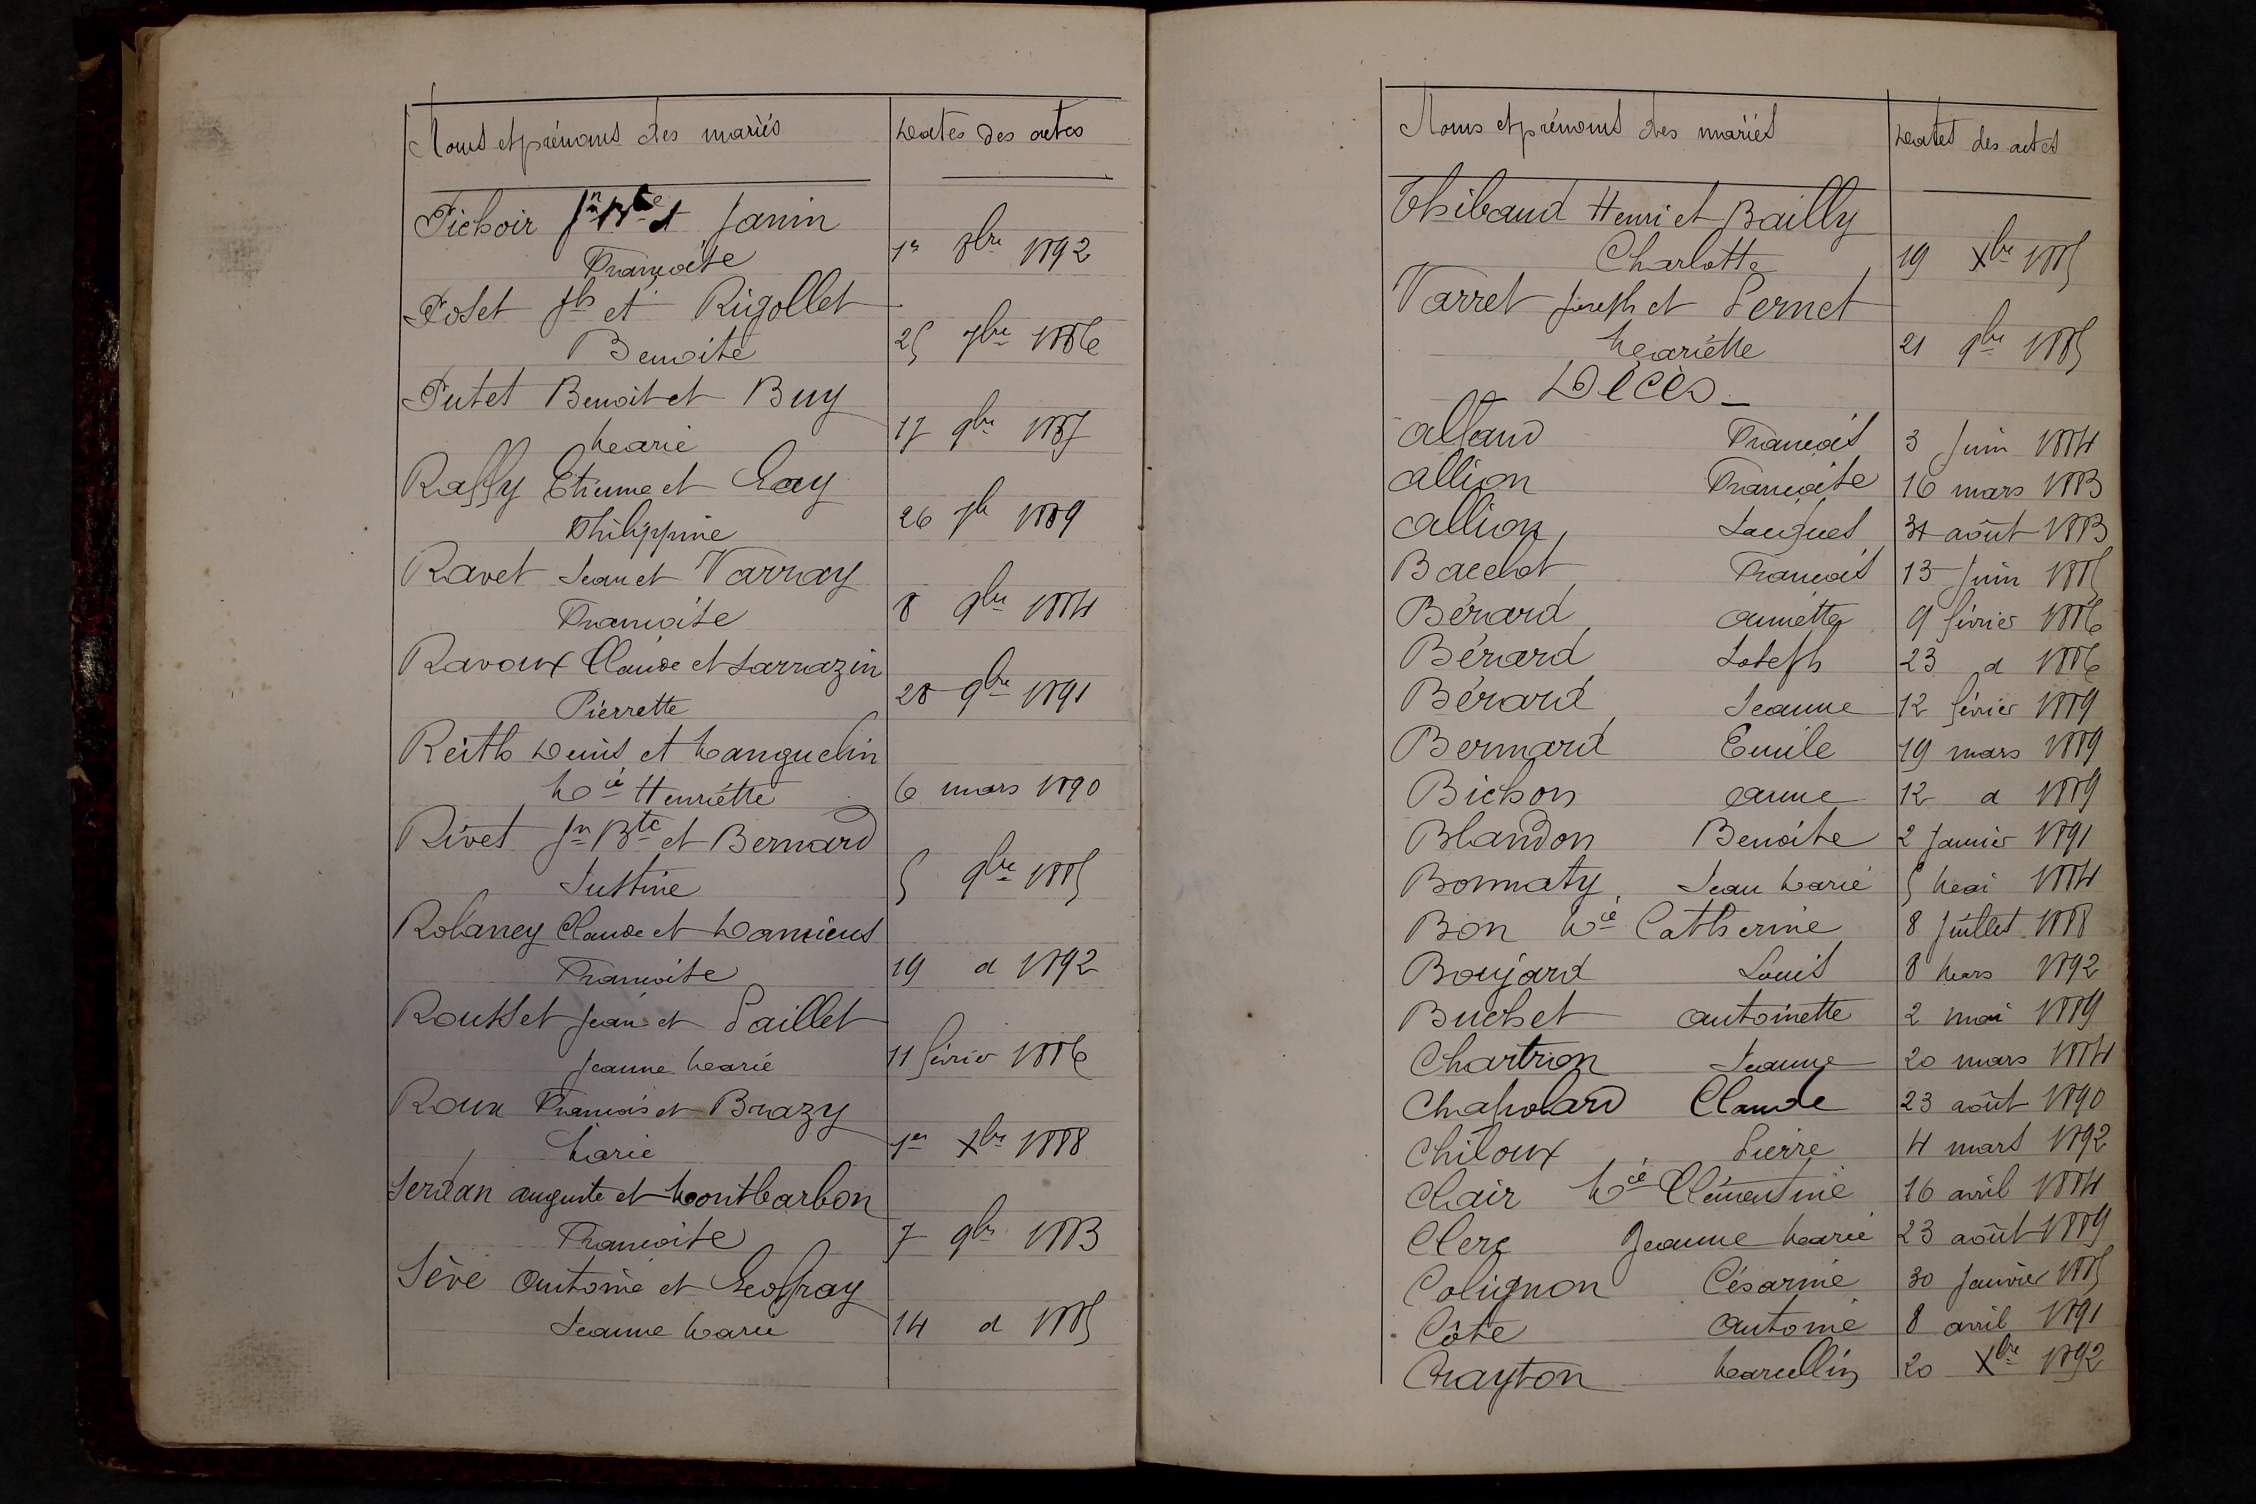 Noms et prénoms des mariés Dates des actes
Pichoir Jn Bte et Janin
Françoise 1er 8bre 1892
Poset Jh et Rigollet
Benoite 25 9bre 1886
Putet Benoit et Buy
Marie 17 9bre 1887
Raffy Etienne et Gay
Philippine 26 1889
Ravet Jean et Varray
Françoise 8 9bre 1884
Ravoux Claude et Sarrazin
Pierrette 28 9bre 1891
Reith Denis et Manguelin
Mie Henriette 6 mars 1890
Rivet Jn Bte et Bernard
Justine 5 9bre 1885
Rolaney Claude et Damiens
Françoise 19 d 1892
Rousset Jean et Paillet
Jeanne Marie 11 février 1886
Roux François et Brazy
Marie 1er Xbre 1888
Serdan auguste et Montbarbon
Françoise 7 9bre 1883
Sève Antoine et Geoffray
Jeanne Marie 14 d 1885
Noms et prénoms des mariés Dates des actes
Thibaud Henri et Bailly
Charlotte 19 Xbre 1885
Varret Joseph et Pernet
Mariette 21 9bre 1885
Décès
Allaud François 3 Juin 1884
Allion Françoise 16 mars 1883
Allion Jacques 31 août 1883
Bacelot François 13 Juin 1885
Bérard annette 9 février 1886
Bérard Joseph 23 d 1886
Bérard Jeanne 12 février 1889
Bernard Emile 19 mars 1889
Bichon anne 12 d 1889
Blandon Benoite 2 Janvier 1891
Bonnaty Jean Marie 5 Mai 1884
Bon Mie Catherine 8 Juillet 1888
Boujard Louis 8 Mars 1892
Buchet antoinette 2 mai 1889
Chartron Jeanne 20 mars 1884
Chapolard Claude 23 août 1890
Chiloux Pierre 4 mars 1892
Clair Mie Clémentine 16 avril 1884
Clerc Jeanne Marie 23 août 1889
Colignon Césarine 30 Janvier 1885
Côte antoine 8 avril 1891
Crayton Marcellin 20 Xbre 1892